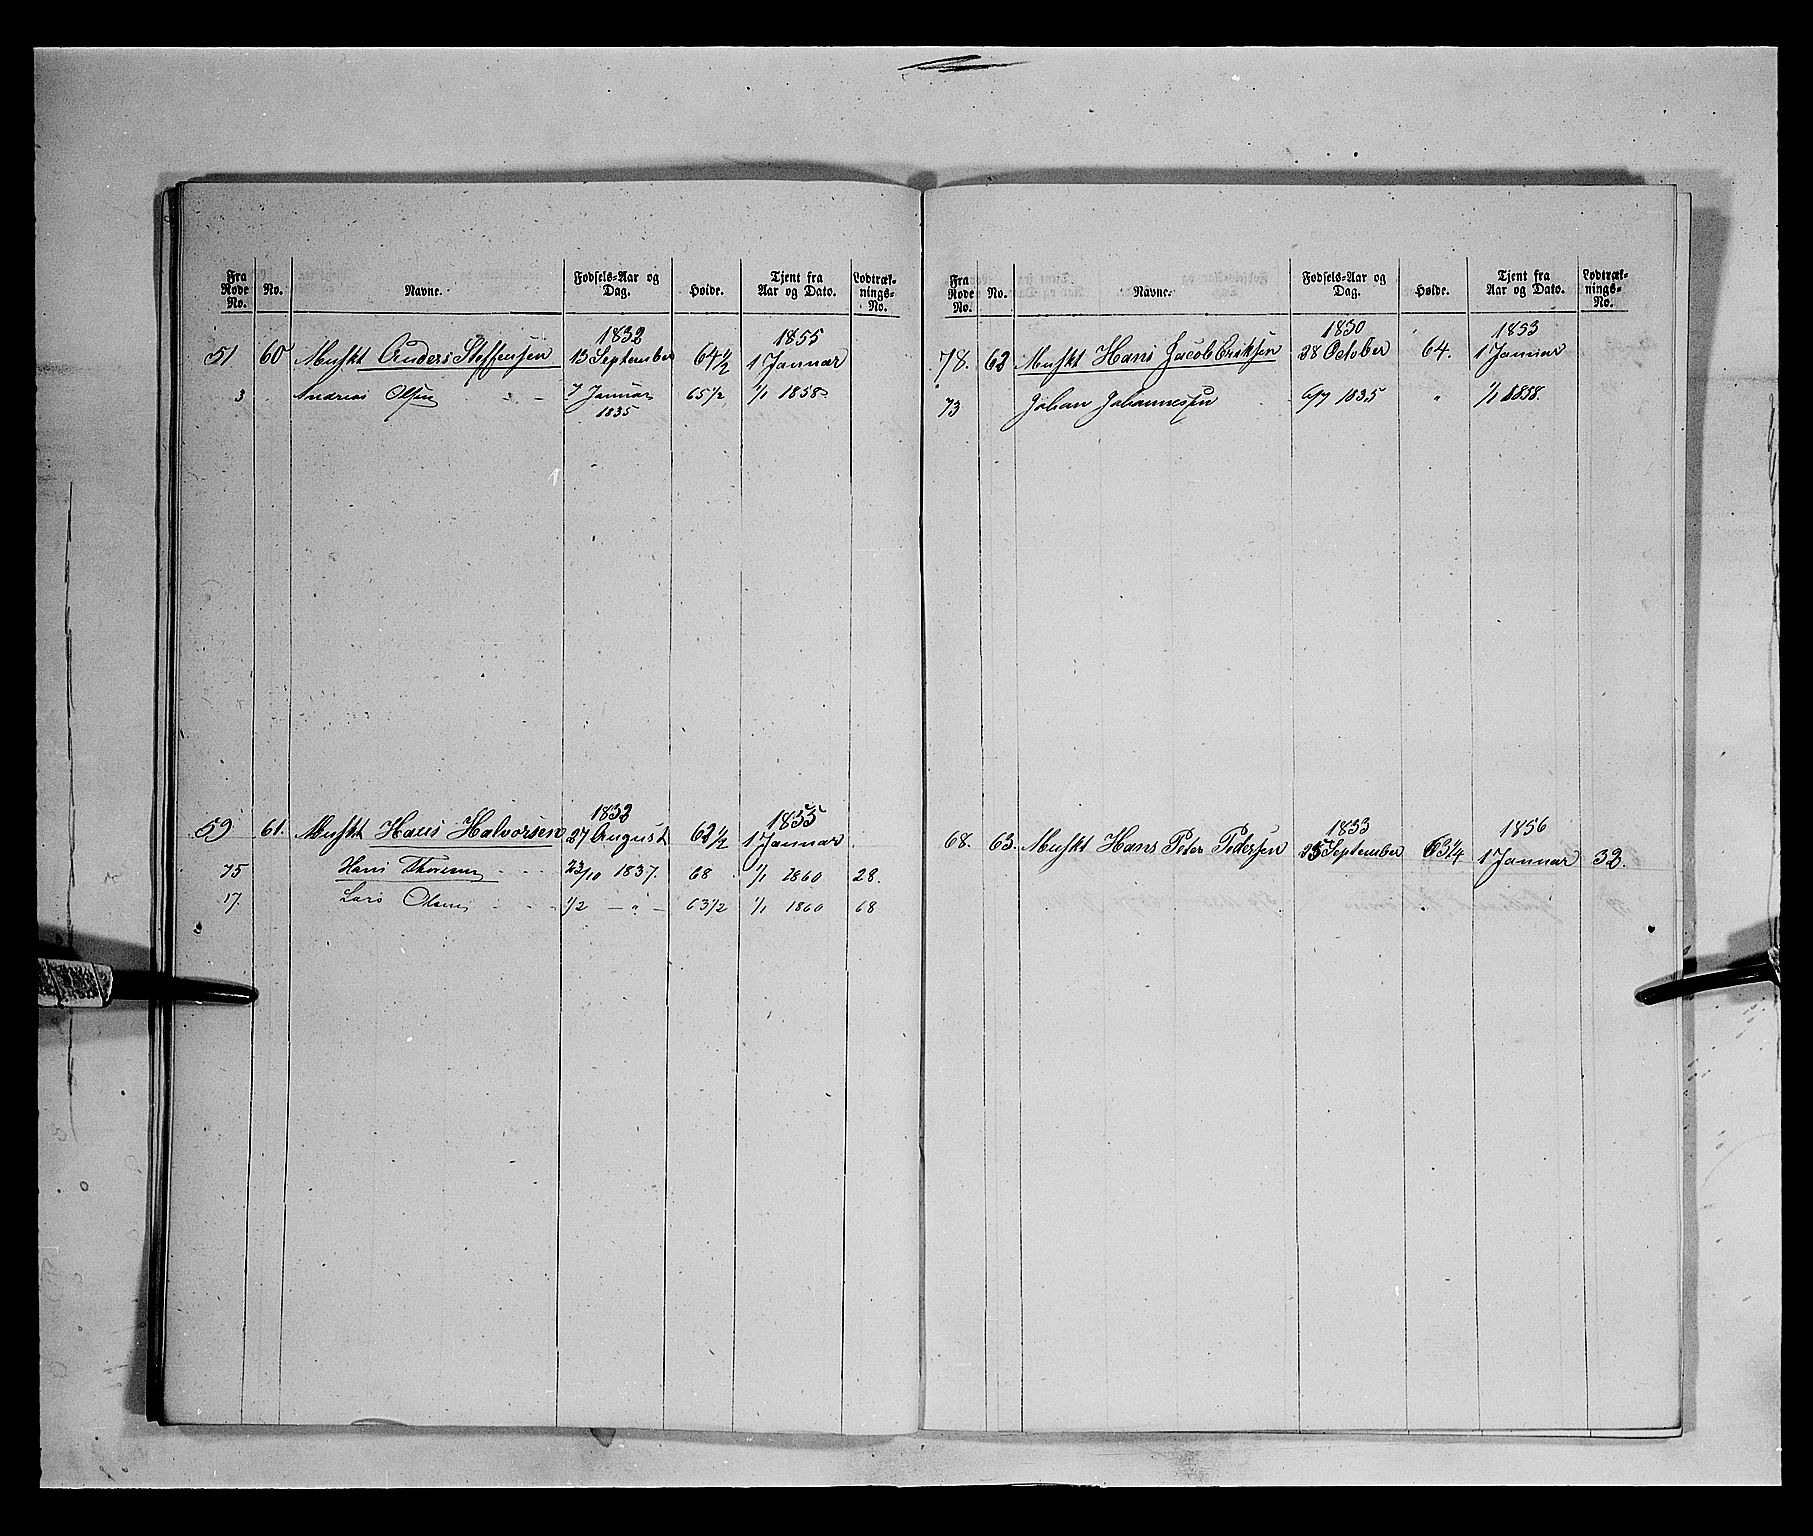 Fra Rode No. No. Navne. Fødsels-Aar og Dag. Høide. Tjent fra Aar og Dato. Lodtræk-nings-No.
1832 1855
51 60 Muskt Anders Steffensen 13 September 64½ 1 Januar
3 Andreas Olsen 7 Januar 65½ 1/1 1858
1835
1832 1855
59 61. Muskt Hans Halvorsen 27 August 62½ 1 Januar
75 Hans Thoresen 23/10 1837. 68 1/1 1860 28.
17. Lars Olsen 1/2 — " — 63½ 1/1 1860 68
Fra Rode No. No. Navne. Fødsels-Aar og Dag. Høide. Tjent fra Aar og Dato. Lodtræk-nings-No.
1830 1853
78. 62 Muskt Hans Jacob Eriksen 28 October 64. 1 Januar
73 Johan Johannessen 6/7 1835 " 1/1 1858.
1833 1856
68. 63. Muskt Hans Peter Pedersen 25 September 63¼ 1 Januar 32.